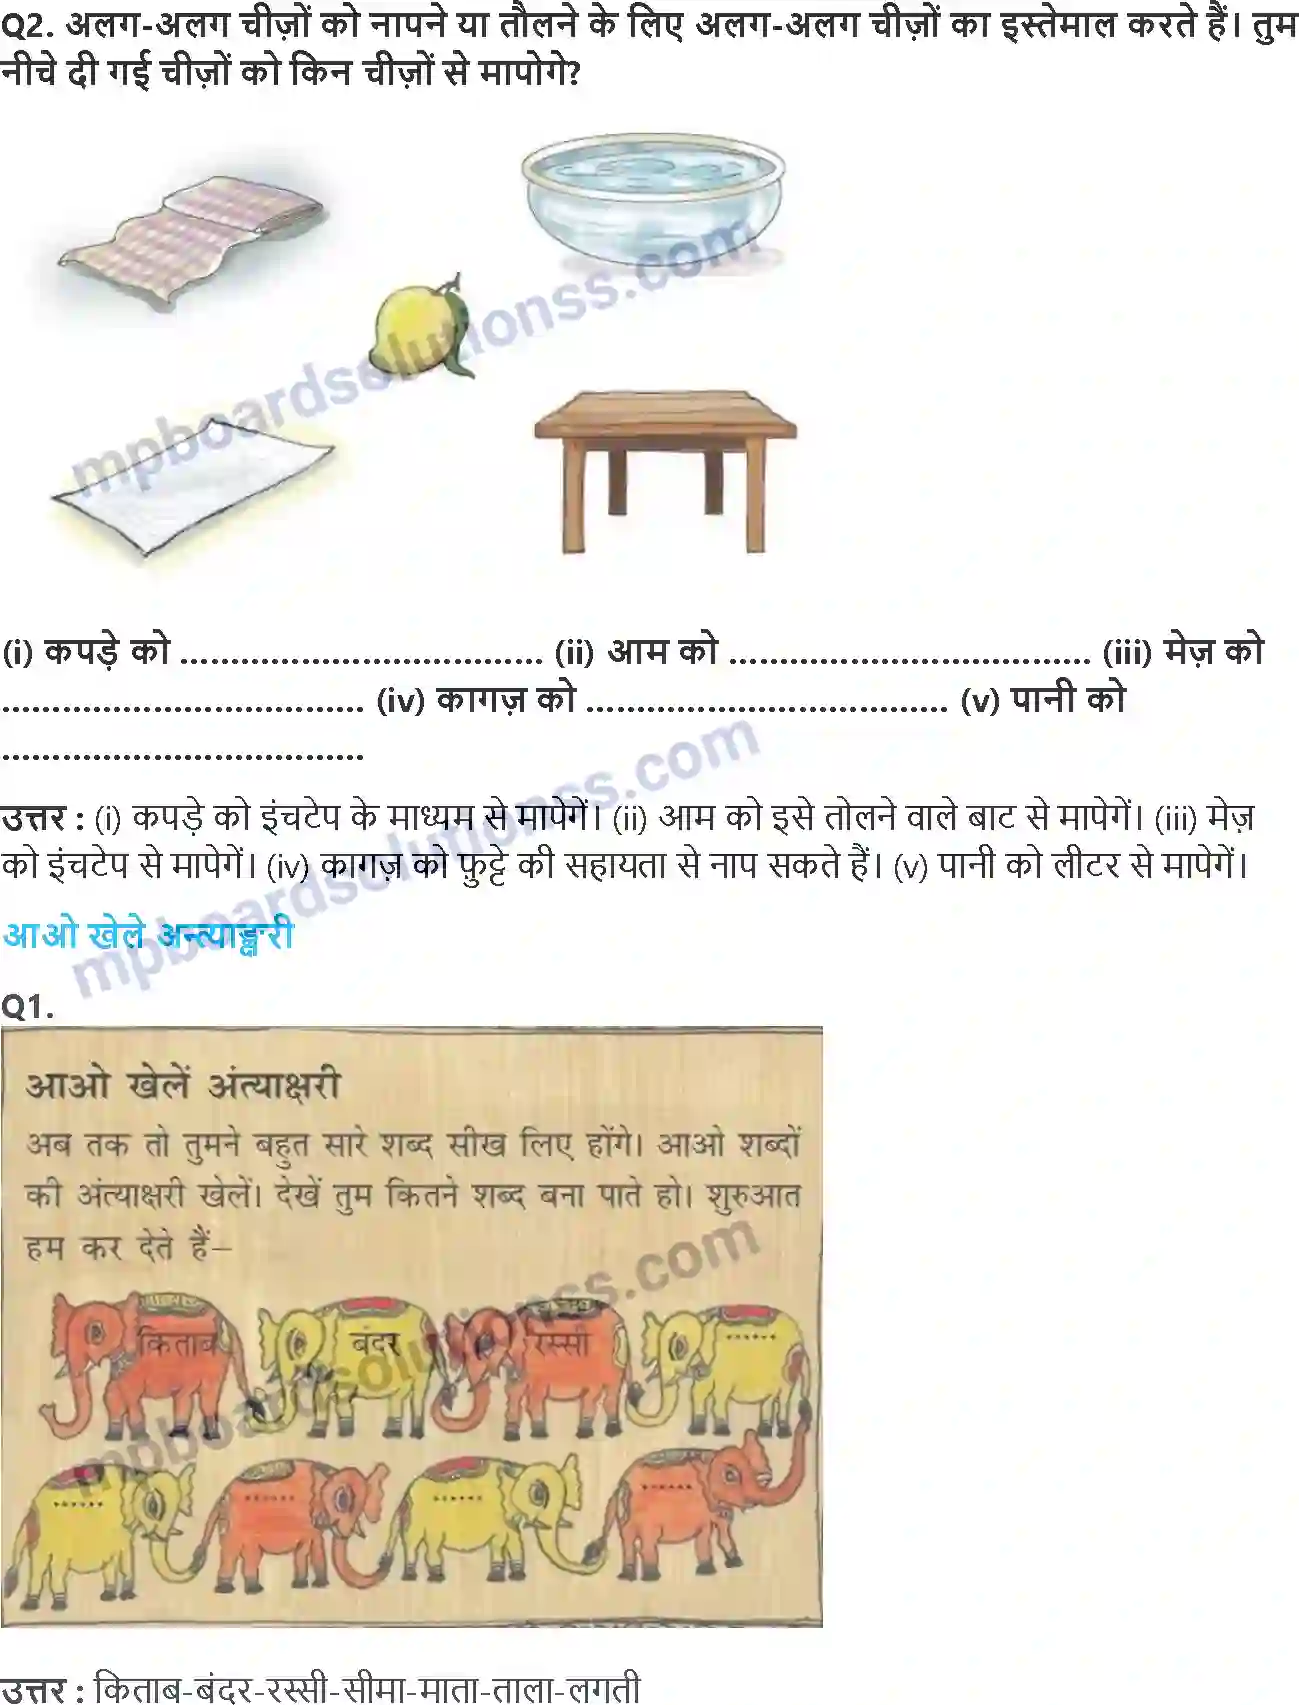 Q2. अलग-अलग चीज़ों को नापने या तौलने के लिए अलग-अलग चीज़ों का इस्तेमाल करते हैं। तुम
नीचे दी गई चीज़ों को किन चीज़ों से मापोगे?
mpboardsolutionss.com
(i) कपड़े को .................................... (ii) आम को .................................... (iii) मेज़ को
.................................... (iv) कागज़ को .................................... (v) पानी को
....................................
उत्तर : (i) कपड़े को इंचटेप के माध्यम से मापेगें। (ii) आम को इसे तोलने वाले बाट से मापेगें। (iii) मेज़
को इंचटेप से मापेगें। (iv) कागज़ को फ़ुट्टे की सहायता से नाप सकते हैं। (v) पानी को लीटर से मापेगें।
mpboardsolutionss.com
आओ खेले अन्त्याङ्क्षरी
Q1.
आओ खेलें अंत्याक्षरी
अब तक तो तुमने बहुत सारे शब्द सीख लिए होंगे। आओ शब्दों
की अंत्याक्षरी खेलें। देखें तुम कितने शब्द बना पाते हो। शुरुआत
हम कर देते हैं–
mpboardsolutionss.com
किताब बंदर रस्सी ......
...... ...... ...... ......
उत्तर : किताब-बंदर-रस्सी-सीमा-माता-ताला-लगती